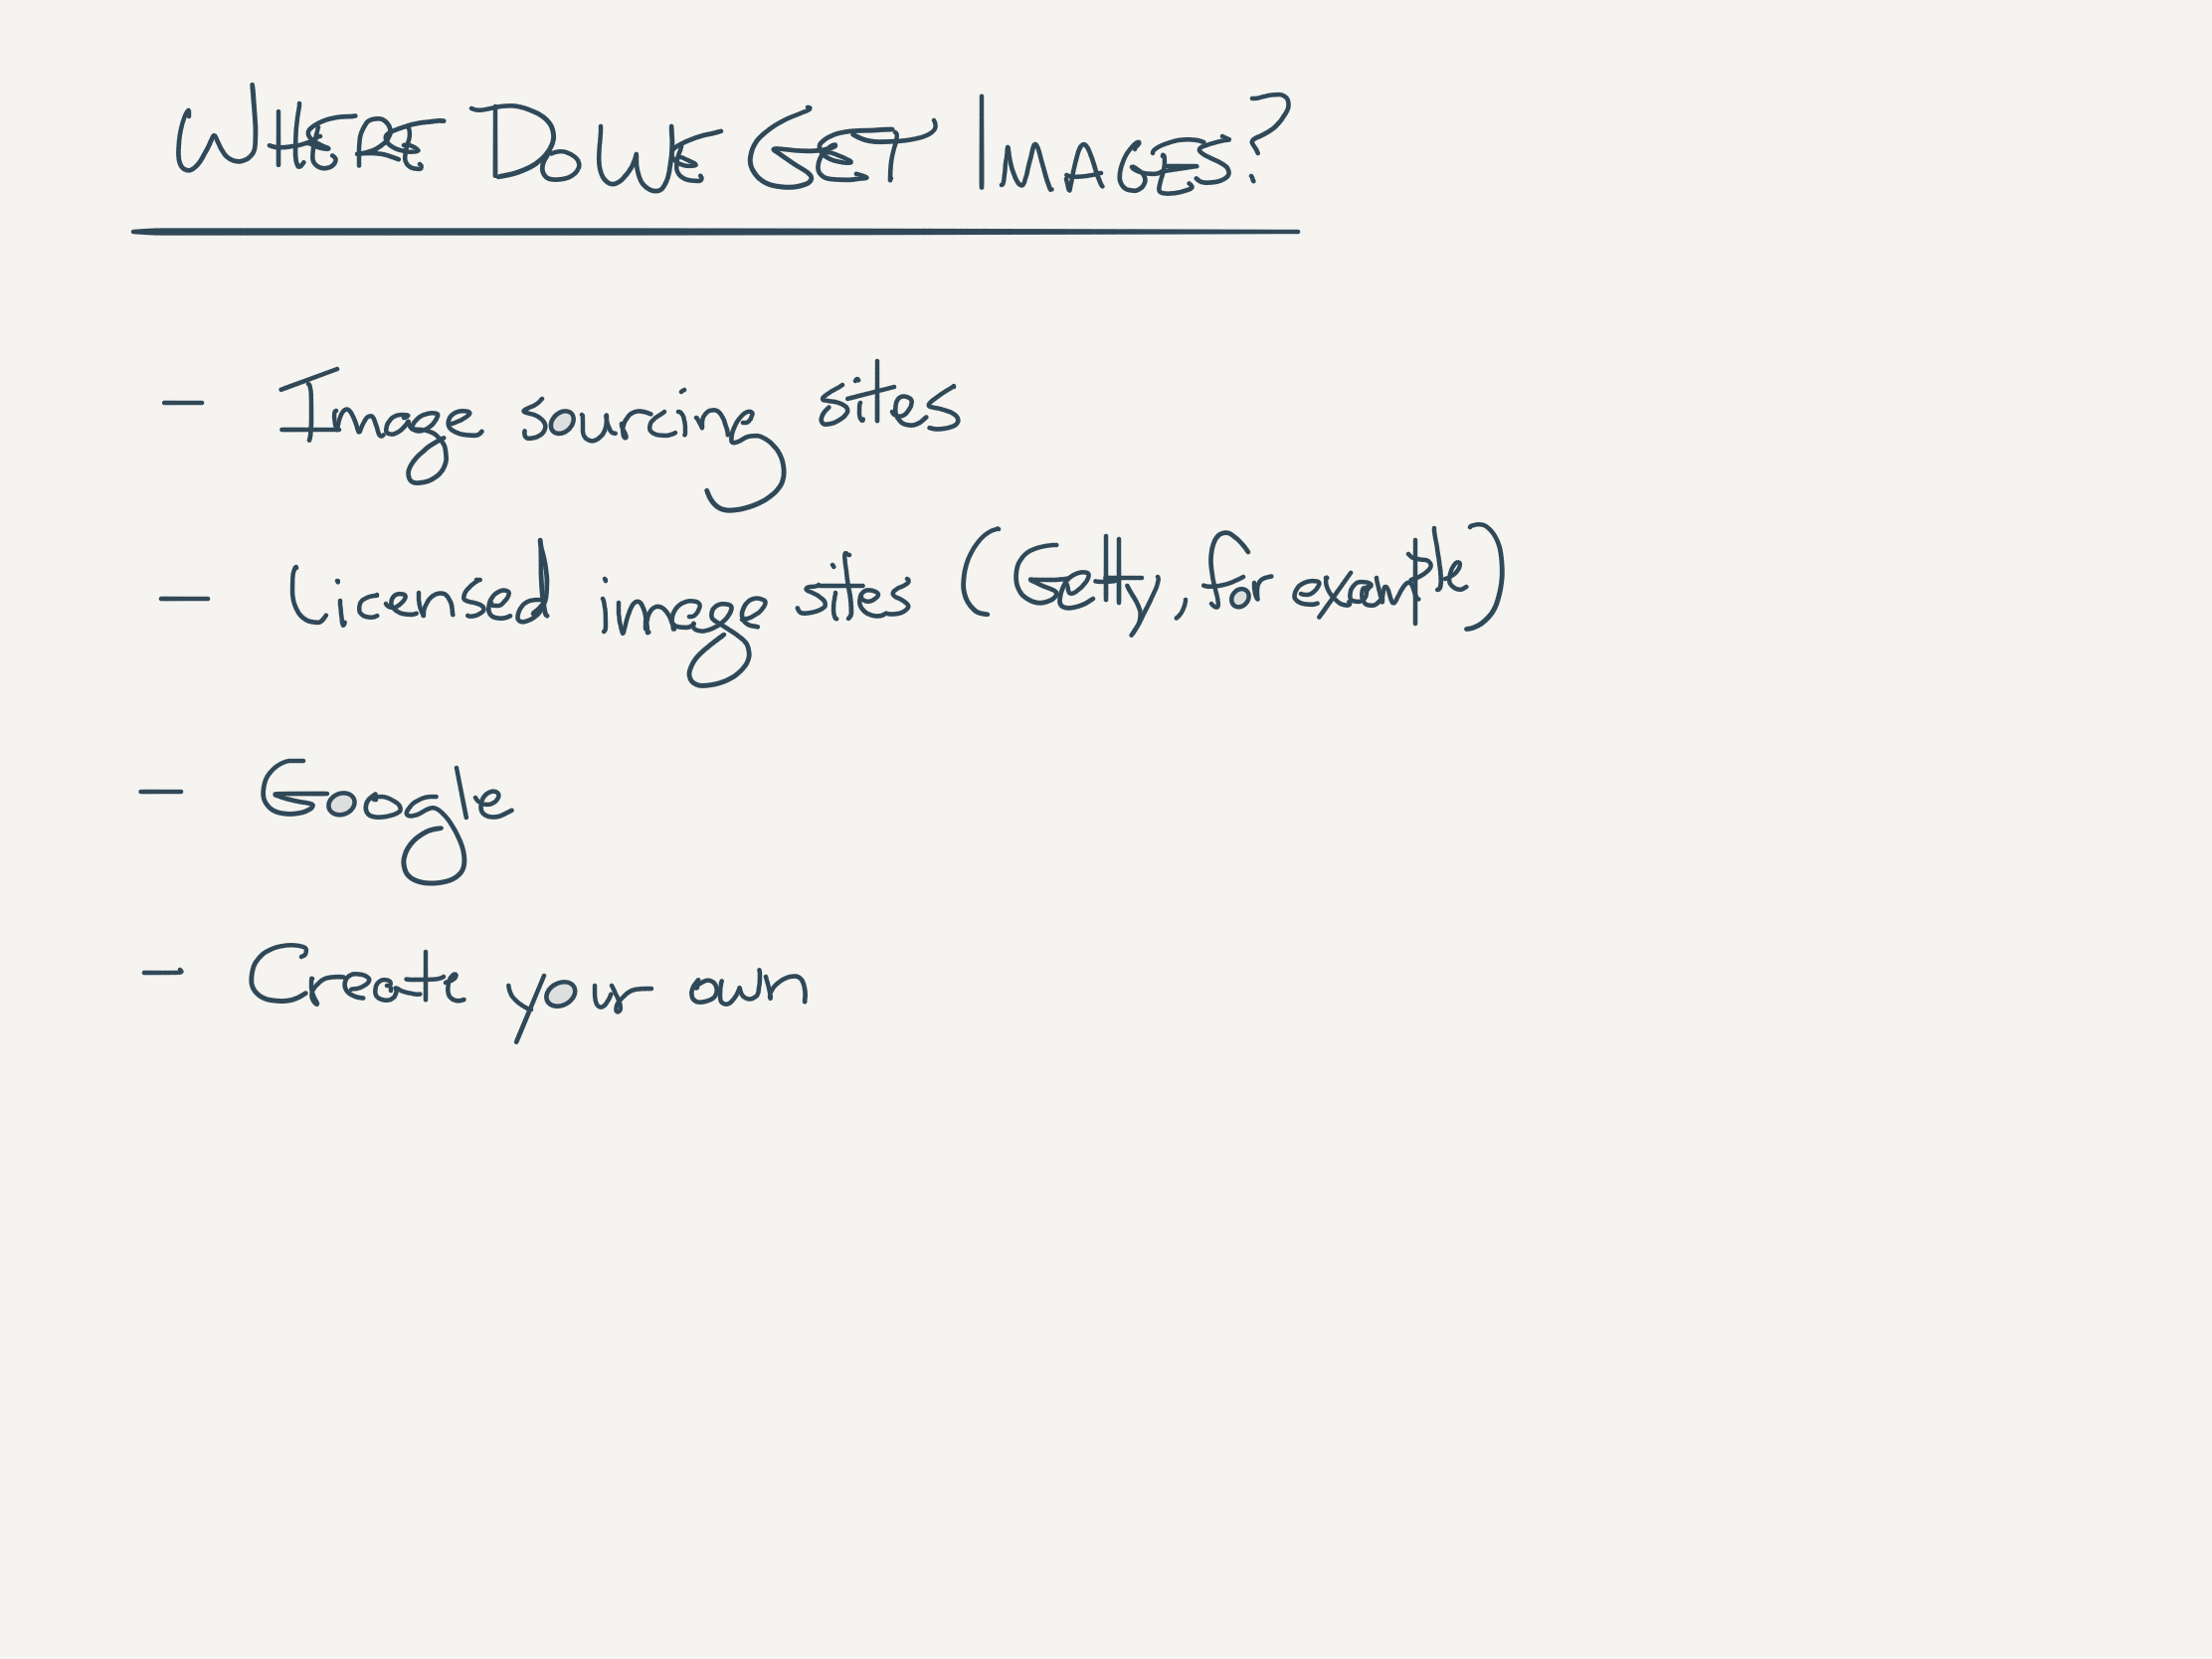 WHERE DO WE GET IMAGES?
- Image sourcing sites
- Licensed image sites (Getty, for example)
- Google
- Create your own